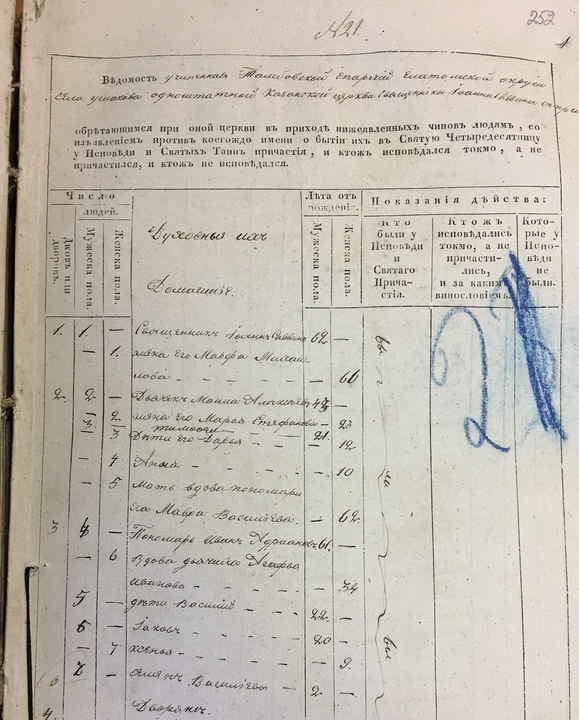 252
№ 21.
Вѣдомость учиненная Тамбовской епархіи Елатомской округи
села Ушакова одноштатной Казанской церкви Священника Іоанна
обрѣтающимся при оной церкви въ приходѣ нижеявленныхъ чиновъ людямъ, со
изъявленіемъ противъ коегождо имени о бытіи ихъ въ Святую Четыредесятницу
у Исповѣди и Святыхъ Таинъ причастія, и ктожъ исповѣдался токмо, а не
причастился, и ктожъ не исповѣдался.
Число
людей.
Дмовъ или дворовъ.
Мужеска пола.
Женска пола.
Духовныя ихъ
Домашніе.
Лѣта отъ
рожденія.
Мужеска пола.
Женска пола.
Показанія дѣйства:
Кто
были у
Исповѣди
и
Святаго
Прича-
стія.
Ктожъ
исповѣдались
токмо, а не
причасти-
лись,
и за какимъ
винословіемъ.
Кото-
рые у
Испо-
вѣди
не
были.
1. 1. — Священникъ Іоаннъ Саввинъ 62 —
— 1. жена его Марфа Михаи
лова — 60
2. 2 — Дьячекъ
2 жена его Марья Стефанова — 27
3 Дѣти его Дарья — 12
— 4 Анна — 10
— 5 Мать вдова пономари
ха Мавра Василіева — 62
3 4 — Пономарь Иванъ Адріановъ 61 —
— 6 Вдова дьячиха Агафья
Иванова — 34
5 — дѣти Василій 22 —
6 — Іаковъ 20 —
— 7 Ксенья — 9.
7 — Василіевы 2 —
4. Дворянъ.